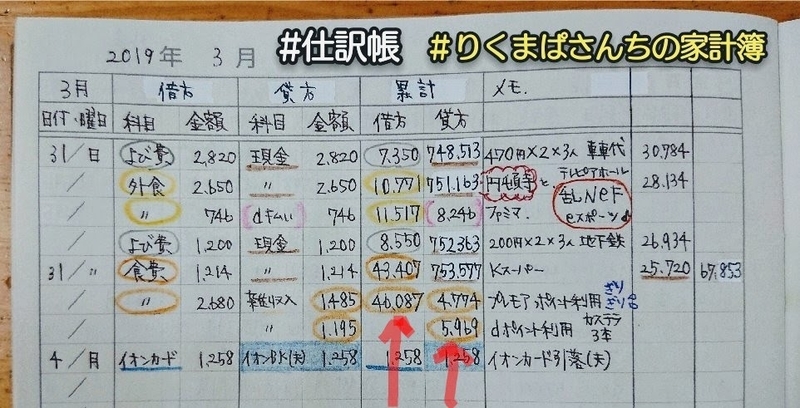 2019年 3月 #仕訳帳 #りくまぱさんちの家計簿
3月 借方 貸方 累計 メモ.
日付・曜日 科目 金額 科目 金額 借方 貸方
31/日 よび費 2,820 現金 2,820 7,350 748,513 470円×2×3人 電車代 30,784
/ 外食 2,650 〃 2,650 10,771 751,163 と テレピアホール 28,134
/ 〃 746 dギムい 746 11,517 8,246 ファミマ eスポーツ
/ よび費 1,200 現金 1,200 8,550 752,363 200円×2×3人 地下鉄 26,934
31/〃 食費 1,214 〃 1,214 43,407 753,577 Kスーパー 25,720 67,853
/ 〃 2,680 雑収入 1485 46,087 4,774 プレモアポイント利用 ぎり ぎり
/ 〃 1,195 5,969 dポイント利用 カステラ 3本
4/月 イオンカード 1,258 1,258 1,258 1,258 イオンカード引落(夫)
/
/